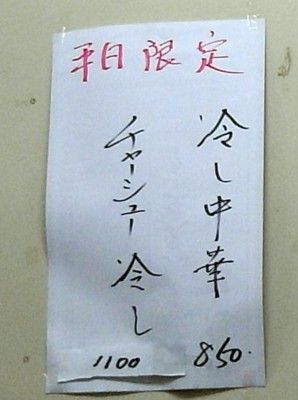 平日限定
冷し中華
850.
チャーシュー冷し
1100